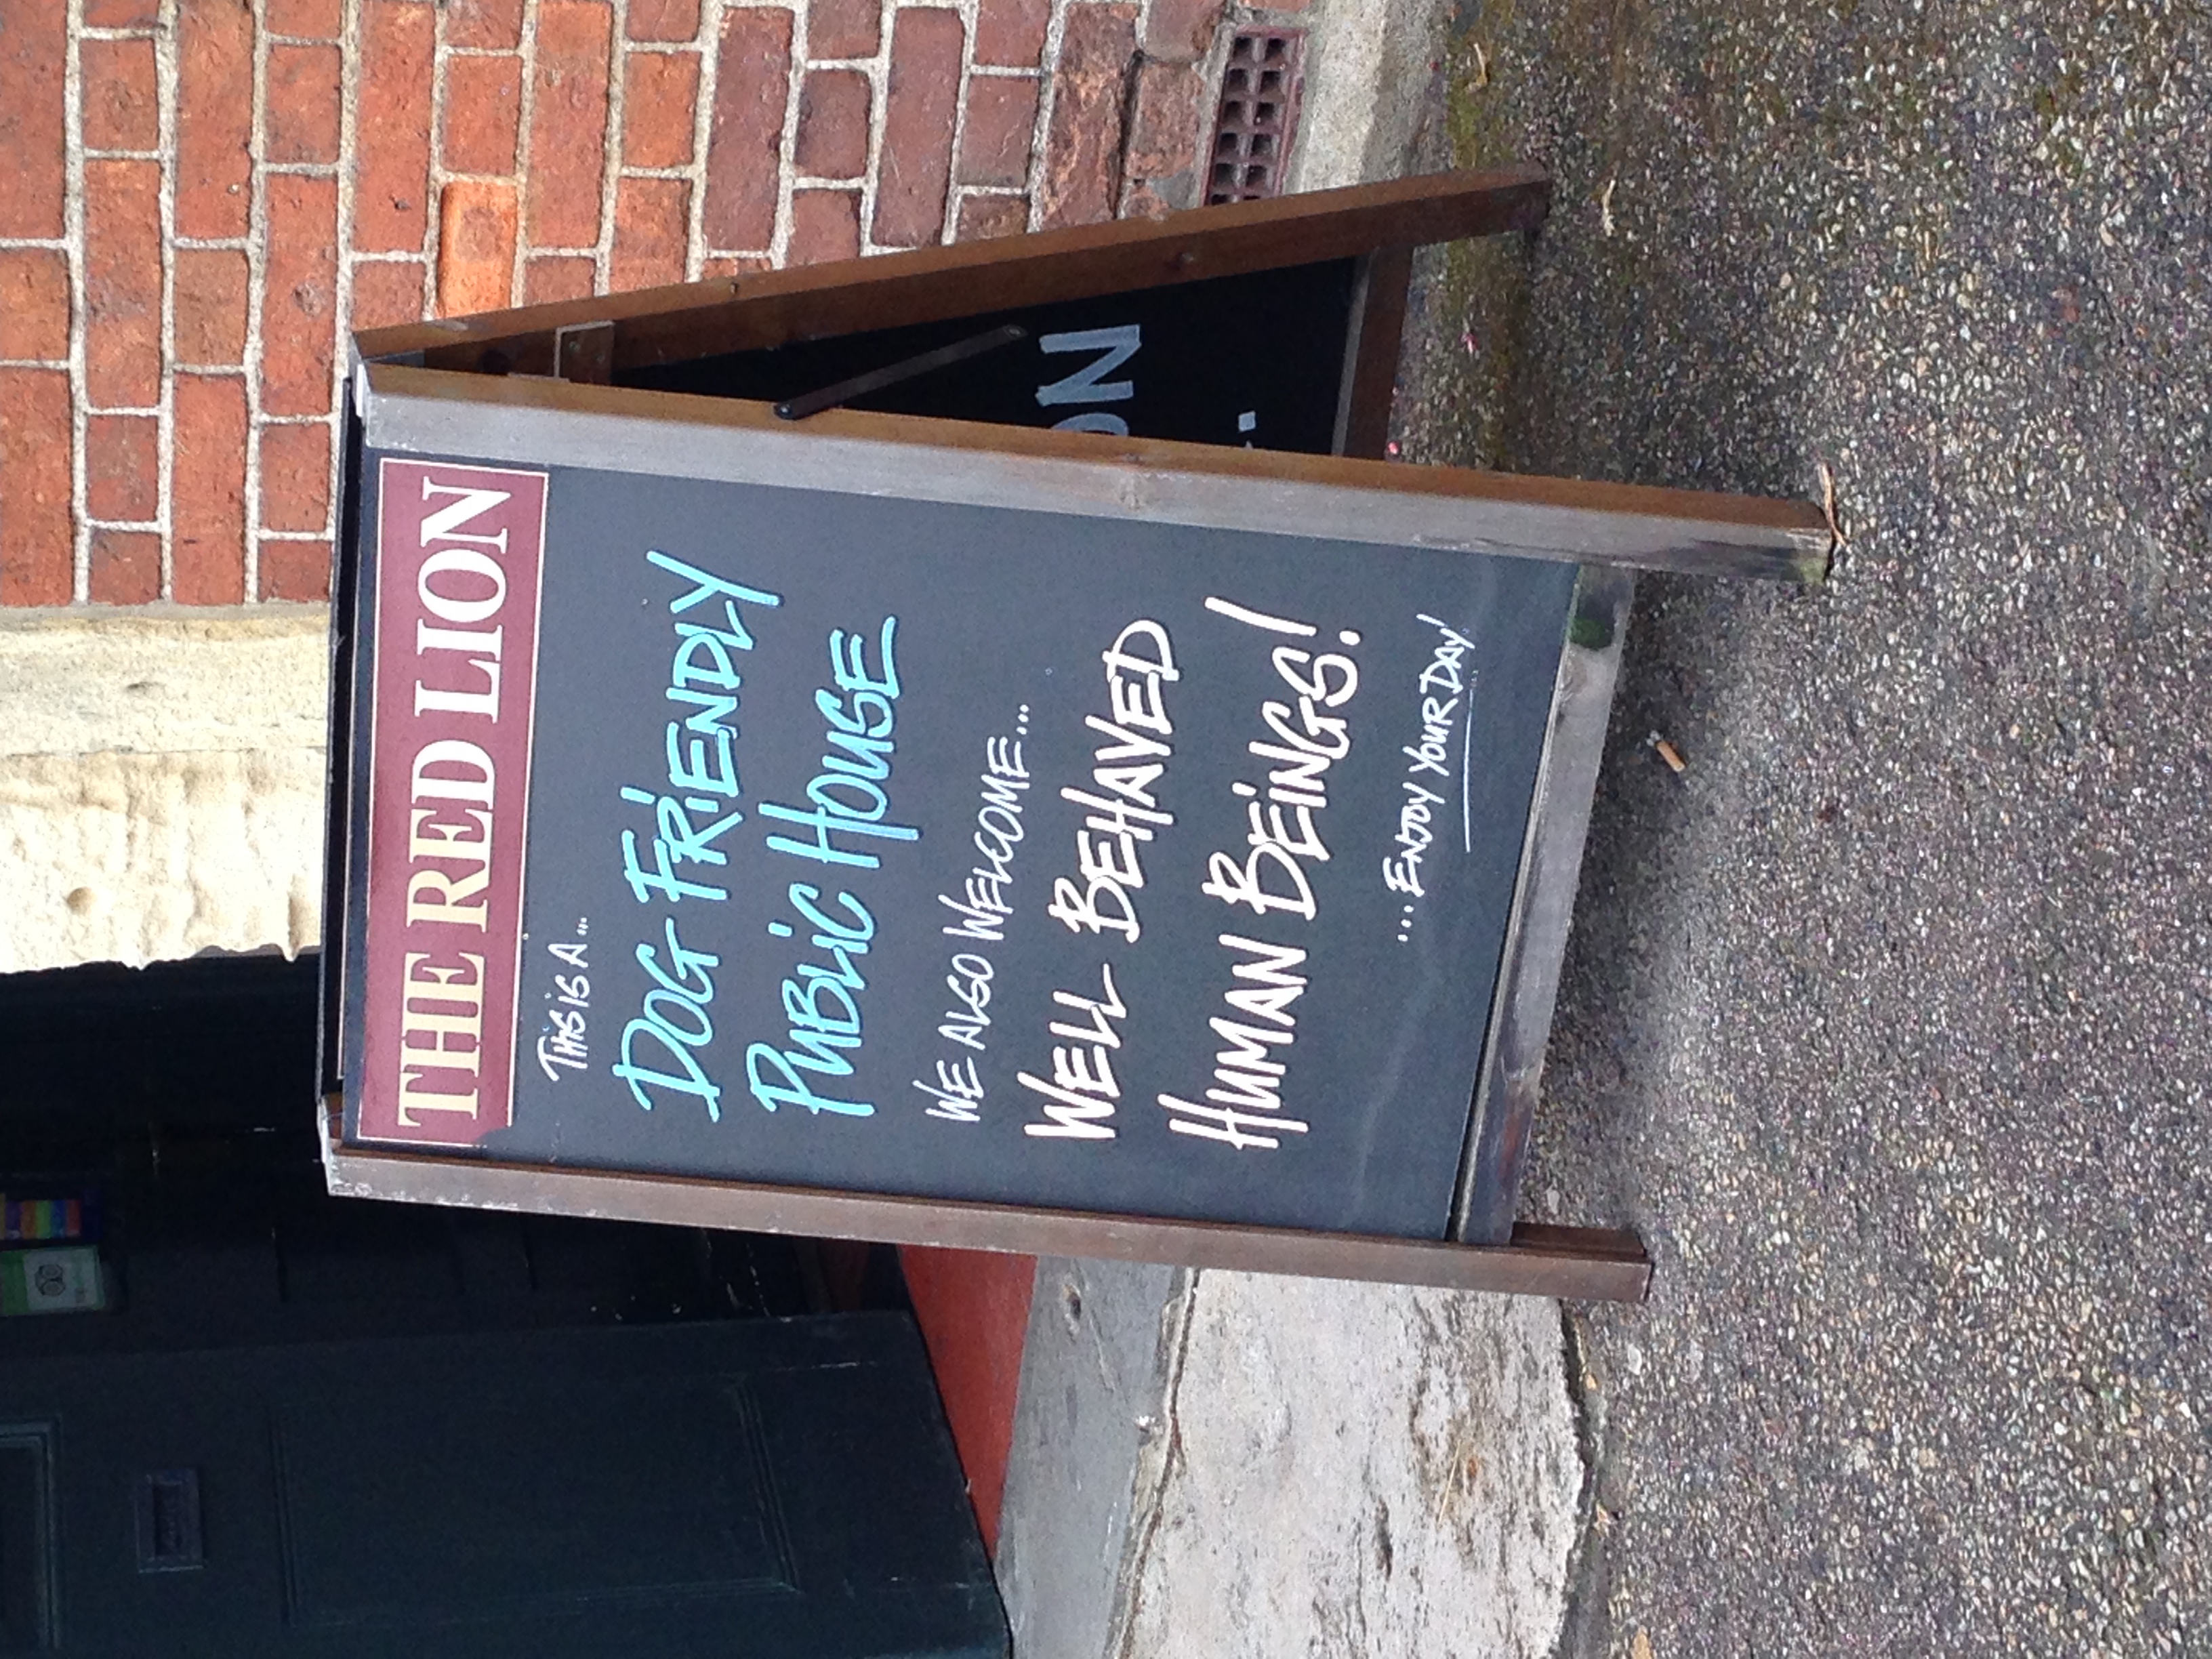 THE RED LION
THIS IS A...
DOG FRIENDLY
PUBLIC HOUSE
WE ALSO WELCOME...
WELL BEHAVED
HUMAN BEINGS!
...ENJOY YOUR DAY!